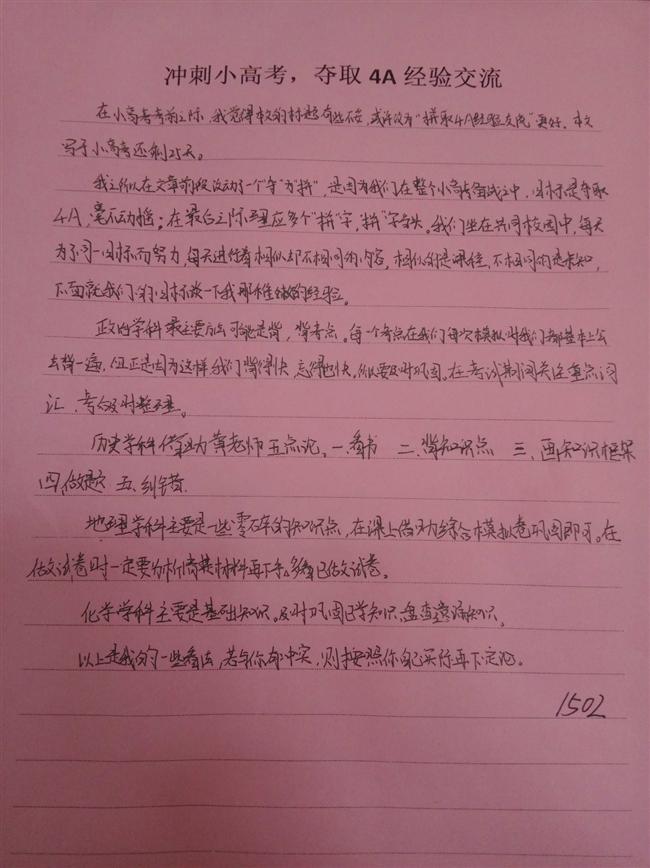 冲刺小高考，夺取 4A 经验交流
在小高考考前之际，我觉得本文的标题有些不妥，或许改为“拼取4A经验交流”更好。本文
写于小高考还剩25天。
我之所以在文章前段改动了一个“夺”为“拼”，是因为我们在整个小高考备战之中，目标是夺取
4A，毫不动摇；在最后之际更应多个“拼”字，“拼”字当头。我们坐在共同校园中，每天
为了同一目标而努力，每天进行着相似却不相同的内容，相似的是课程，不相同的是未知，
下面就我们的目标谈一下我那稚嫩的经验。
政治学科最主要方法可能是背，背考点。每一个考点在我们每次模拟时我们都基本上会
去背一遍，但正是因为这样我们背得快，忘得也快，所以要及时巩固。在考试期间关注重点词
汇，考后及时整理。
历史学科借助龚老师五点论。一、看书 二、背知识点 三、画知识框架
四、做题 五、纠错。
地理学科主要是一些零碎的知识点，在课上借助综合模拟卷巩固即可。在
做试卷时一定要分析清楚材料再下手。多看已做试卷。
化学学科主要是基础知识。及时巩固已学知识，盘查遗漏知识。
以上是我的一些看法，若与你有冲突，则按照你自己实际再下定论。
1502